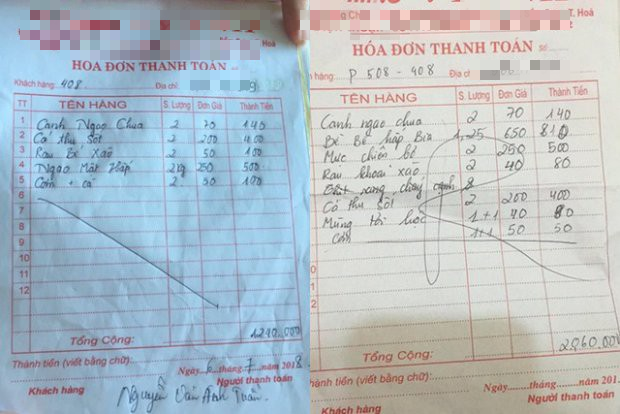 Hoá
HOÁ ĐƠN THANH TOÁN
Khách hàng: 408 Địa chỉ:
TT TÊN HÀNG S. Lượng Đơn Giá Thành Tiền
1 Canh Ngao Chua 2 70 140
2 Cá thu Sốt 2 200 400
3 Rau Bí Xào 2 50 100
4 Ngao Mật Hấp 2kg 250 500
5 Cơm + cá 2 50 100
6
7
8
9
10
11
12
Tổng Cộng: 1.240.000
Thành tiền (viết bằng chữ):
Ngày 6 tháng 7 năm 2018
Khách hàng Người thanh toán
Nguyễn Văn Anh Tuấn
T. Hoá
HÓA ĐƠN THANH TOÁN Số
hàng: P 508 - 408 Địa chỉ:
TÊN HÀNG S. Lượng Đơn Giá Thành Tiền
Canh ngao chua 2 70 140
Bề Bề hấp Bia 1,25 650 810
Mực chiên bơ 2 250 500
Rau khoai xào 2 40 80
rang 8
Cá thu sốt 2 200 400
Mùng tơi luộc 1+1 40 80
Cơm 1+1 50 50
0
1
2
Tổng Cộng: 2,060.000
Thành tiền (viết bằng chữ):
Ngày tháng năm 201
Khách hàng Người thanh toán